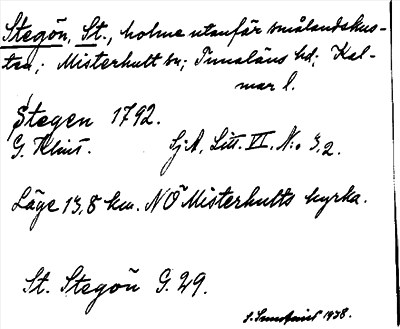 Stegön, St., holme utanför smålandskus-
ten; Misterhult sn; Tunaläns hd; Kal-
mar l.
Stegen 1792.
G. Klint. SjA, Litt. VI. N:o 3,2.
Läge 13,8 km. NÖ Misterhults kyrka.
St. Stegön G.29.
1938.